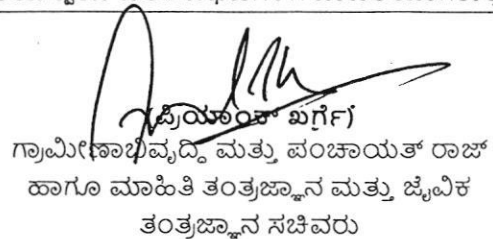 (ಪ್ರಿಯಾಂಕ್ ಖರ್ಗೆ)
ಗ್ರಾಮೀಣಾಭಿವೃದ್ಧಿ ಮತ್ತು ಪಂಚಾಯತ್ ರಾಜ್
ಹಾಗೂ ಮಾಹಿತಿ ತಂತ್ರಜ್ಞಾನ ಮತ್ತು ಜೈವಿಕ
ತಂತ್ರಜ್ಞಾನ ಸಚಿವರು